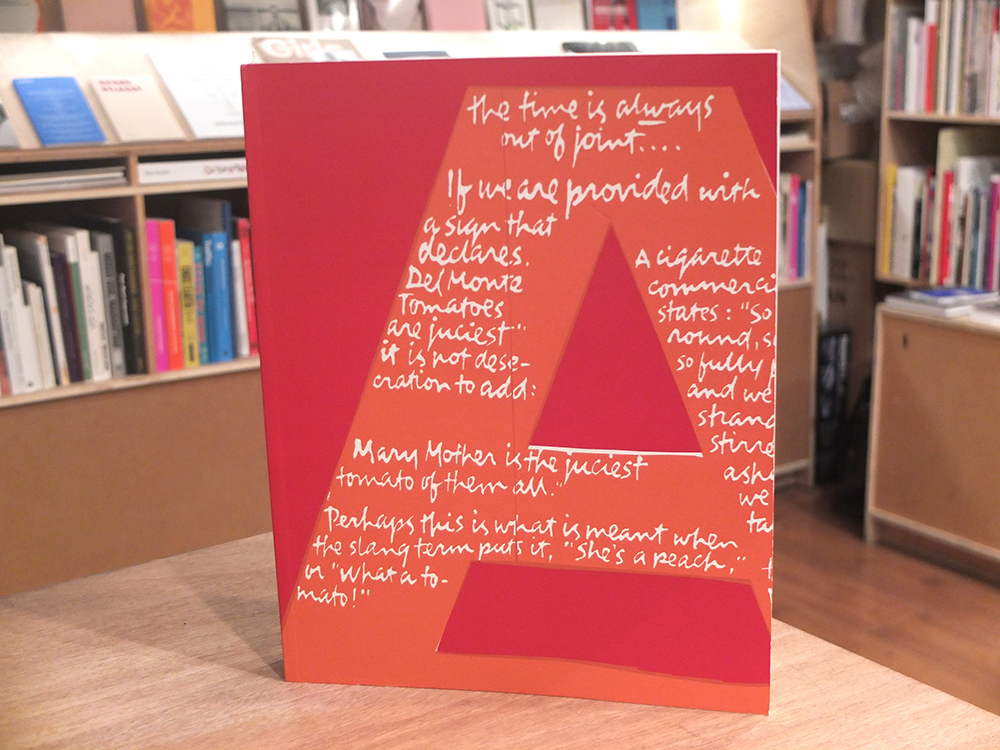 the time is always
out of joint....
If we are provided with
a sign that
declares.
Del Monte
Tomatoes
are juciest"
it is not dese-
cration to add:
Mary Mother is the juciest
tomato of them all."
Perhaps this is what is meant when
the slang term puts it, "She's a peach,"
or "What a to-
mato!"
A cigarette
commerci
states: "So
round, s
so fully
and we
strand
stirre
ashe
we
ta